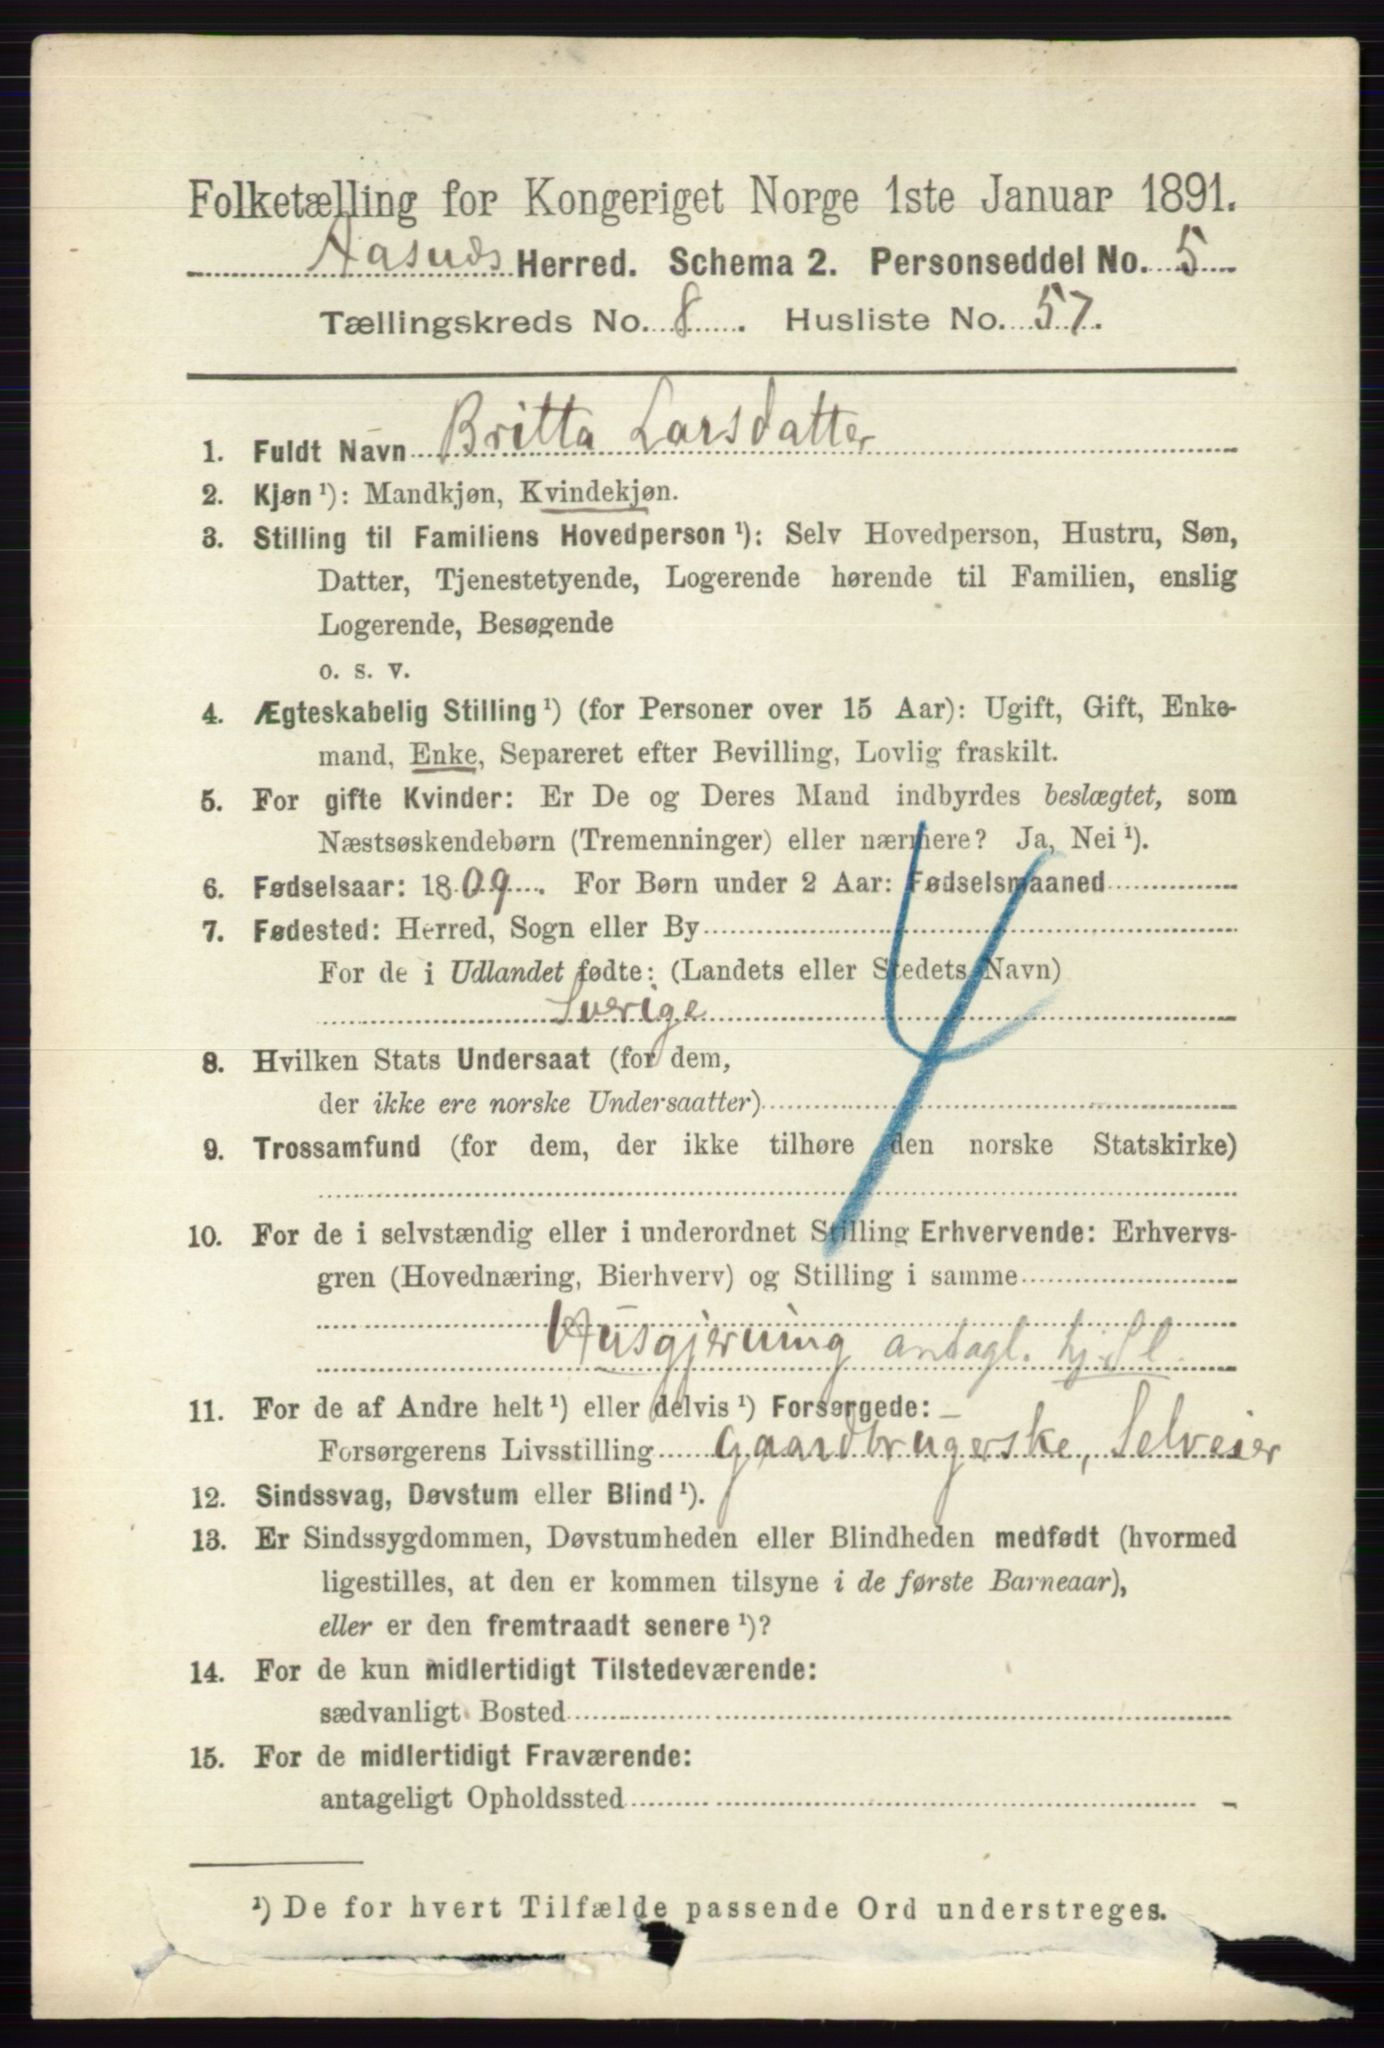 Folketælling for Kongeriget Norge 1ste Januar 1891.
Aasnæs Herred. Schema 2. Personseddel No. 5
Tællingskreds No. 8. Husliste No. 57.
1. Fuldt Navn Britta Larsdatter
2. Kjøn ¹): Mandkjøn, Kvindekjøn.
3. Stilling til Familiens Hovedperson ¹): Selv Hovedperson, Hustru, Søn,
Datter, Tjenestetyende, Logerende hørende til Familien, enslig
Logerende, Besøgende
o. s. v.
4. Ægteskabelig Stilling ¹) (for Personer over 15 Aar): Ugift, Gift, Enke-
mand, Enke, Separeret efter Bevilling, Lovlig fraskilt.
5. For gifte Kvinder: Er De og Deres Mand indbyrdes beslægtet, som
Næstsøskendebørn (Tremenninger) eller nærmere? Ja, Nei ¹).
6. Fødselsaar: 1809. For Børn under 2 Aar: Fødselsmaaned
7. Fødested: Herred, Sogn eller By
For de i Udlandet fødte: (Landets eller Stedets Navn)
Sverige
8. Hvilken Stats Undersaat (for dem,
der ikke ere norske Undersaatter)
9. Trossamfund (for dem, der ikke tilhøre den norske Statskirke)
10. For de i selvstændig eller i underordnet Stilling Erhvervende: Erhvervs-
gren (Hovednæring, Bierhverv) og Stilling i samme
Husgjerning antagl. hj. Sl.
11. For de af Andre helt ¹) eller delvis ¹) Forsørgede: –
Forsørgerens Livsstilling Gaardbrugerske, Selveier
12. Sindssvag, Døvstum eller Blind ¹).
13. Er Sindssygdommen, Døvstumheden eller Blindheden medfødt (hvormed
ligestilles, at den er kommen tilsyne i de første Barneaar),
eller er den fremtraadt senere ¹)?
14. For de kun midlertidigt Tilstedeværende:
sædvanligt Bosted
15. For de midlertidigt Fraværende:
antageligt Opholdssted
¹) De for hvert Tilfælde passende Ord understreges.